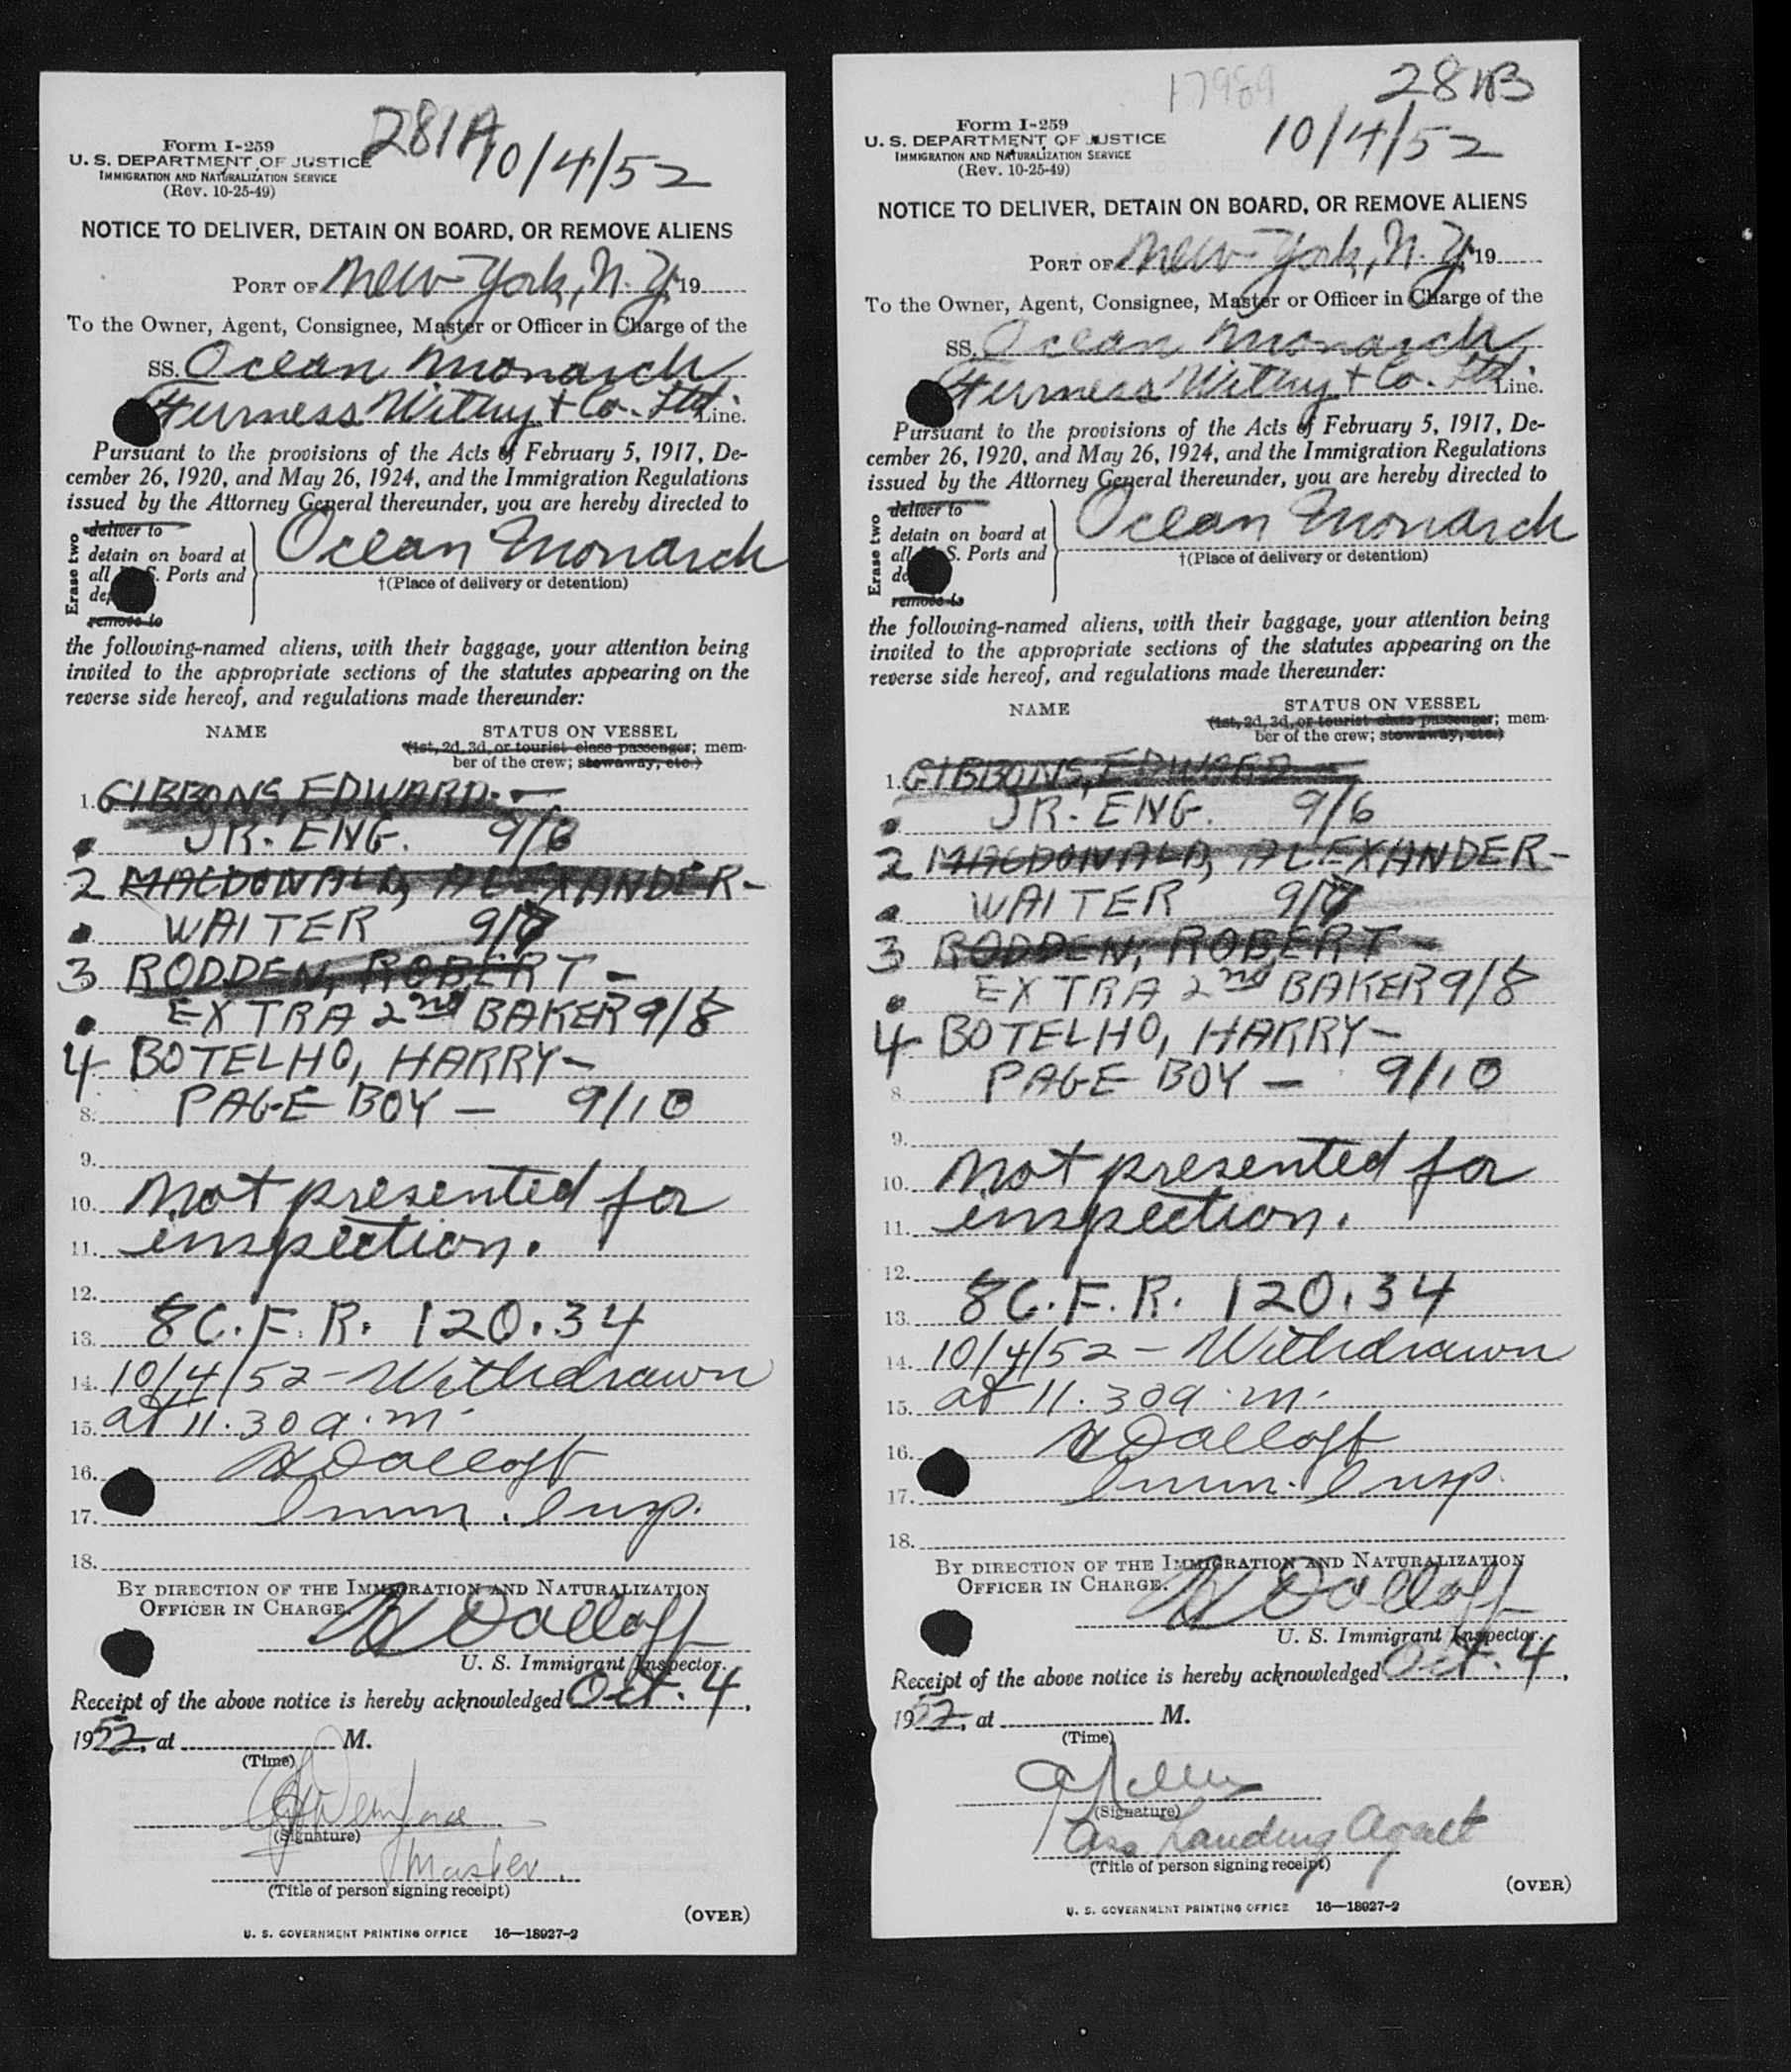 281A
Form I-259
U. S. DEPARTMENT OF JUSTICE
IMMIGRATION AND NATURALIZATION SERVICE
(Rev. 10-25-49)
10/4/52
NOTICE TO DELIVER, DETAIN ON BOARD, OR REMOVE ALIENS
PORT OF New York, N. Y. 19
To the Owner, Agent, Consignee, Master or Officer in Charge of the
SS. Ocean Monarch
Furness Withy + Co. Ltd. Line.
Pursuant to the provisions of the Acts of February 5, 1917, De-
cember 26, 1920, and May 26, 1924, and the Immigration Regulations
issued by the Attorney General thereunder, you are hereby directed to
Erase two
deliver to
detain on board at
all S. Ports and
remove to
Ocean Monarch
†(Place of delivery or detention)
the following-named aliens, with their baggage, your attention being
invited to the appropriate sections of the statutes appearing on the
reverse side hereof, and regulations made thereunder:
NAME STATUS ON VESSEL
(1st, 2d, 3d, or tourist class passenger; mem-
ber of the crew; stowaway, etc.)
1. GIBBONS, EDWARD. -
JR. ENG. 9/6
2 MACDONALD, ALEXANDER-
WAITER 9/7
3 RODDEN, ROBERT -
EXTRA 2nd BAKER 9/8
4 BOTELHO, HARRY-
8. PAGE BOY - 9/10
9.
10. Not presented for
11. inspection.
12.
13. 8 C.F.R. 120.34
14. 10/4/52 - Withdrawn
15. at 11.30 a.m.
16.
17. Imm. Insp.
18.
BY DIRECTION OF THE IMMIGRATION AND NATURALIZATION
OFFICER IN CHARGE.
U. S. Immigrant Inspector.
Receipt of the above notice is hereby acknowledged Oct. 4,
1952, at M.
(Time)
(Signature)
Master.
(Title of person signing receipt)
(OVER)
U. S. GOVERNMENT PRINTING OFFICE 16—18027-2
17989
281B
Form I-259
U. S. DEPARTMENT OF JUSTICE
IMMIGRATION AND NATURALIZATION SERVICE
(Rev. 10-25-49)
10/4/52
NOTICE TO DELIVER, DETAIN ON BOARD, OR REMOVE ALIENS
PORT OF New York, N. Y. 19
To the Owner, Agent, Consignee, Master or Officer in Charge of the
SS. Ocean Monarch
Furness Withy + Co. Ltd. Line.
Pursuant to the provisions of the Acts of February 5, 1917, De-
cember 26, 1920, and May 26, 1924, and the Immigration Regulations
issued by the Attorney General thereunder, you are hereby directed to
Erase two
deliver to
detain on board at
all S. Ports and
remove to
Ocean Monarch
†(Place of delivery or detention)
the following-named aliens, with their baggage, your attention being
invited to the appropriate sections of the statutes appearing on the
reverse side hereof, and regulations made thereunder:
NAME STATUS ON VESSEL
(1st, 2d, 3d, or tourist class passenger; mem-
ber of the crew; stowaway, etc.)
1. GIBBONS, EDWARD -
JR. ENG. 9/6
2 MACDONALD, ALEXANDER-
WAITER 9/7
3 RODDEN, ROBERT -
EXTRA 2nd BAKER 9/8
4 BOTELHO, HARRY-
8. PAGE BOY - 9/10
9.
10. Not presented for
11. inspection.
12.
13. 8 C.F.R. 120.34
14. 10/4/52 - Withdrawn
15. at 11.30 a.m.
16.
17. Imm. Insp.
18.
BY DIRECTION OF THE IMMIGRATION AND NATURALIZATION
OFFICER IN CHARGE.
U. S. Immigrant Inspector.
Receipt of the above notice is hereby acknowledged Oct. 4,
1952, at M.
(Time)
(Signature)
Ass Landing Agent
(Title of person signing receipt)
(OVER)
U. S. GOVERNMENT PRINTING OFFICE 16—18027-2